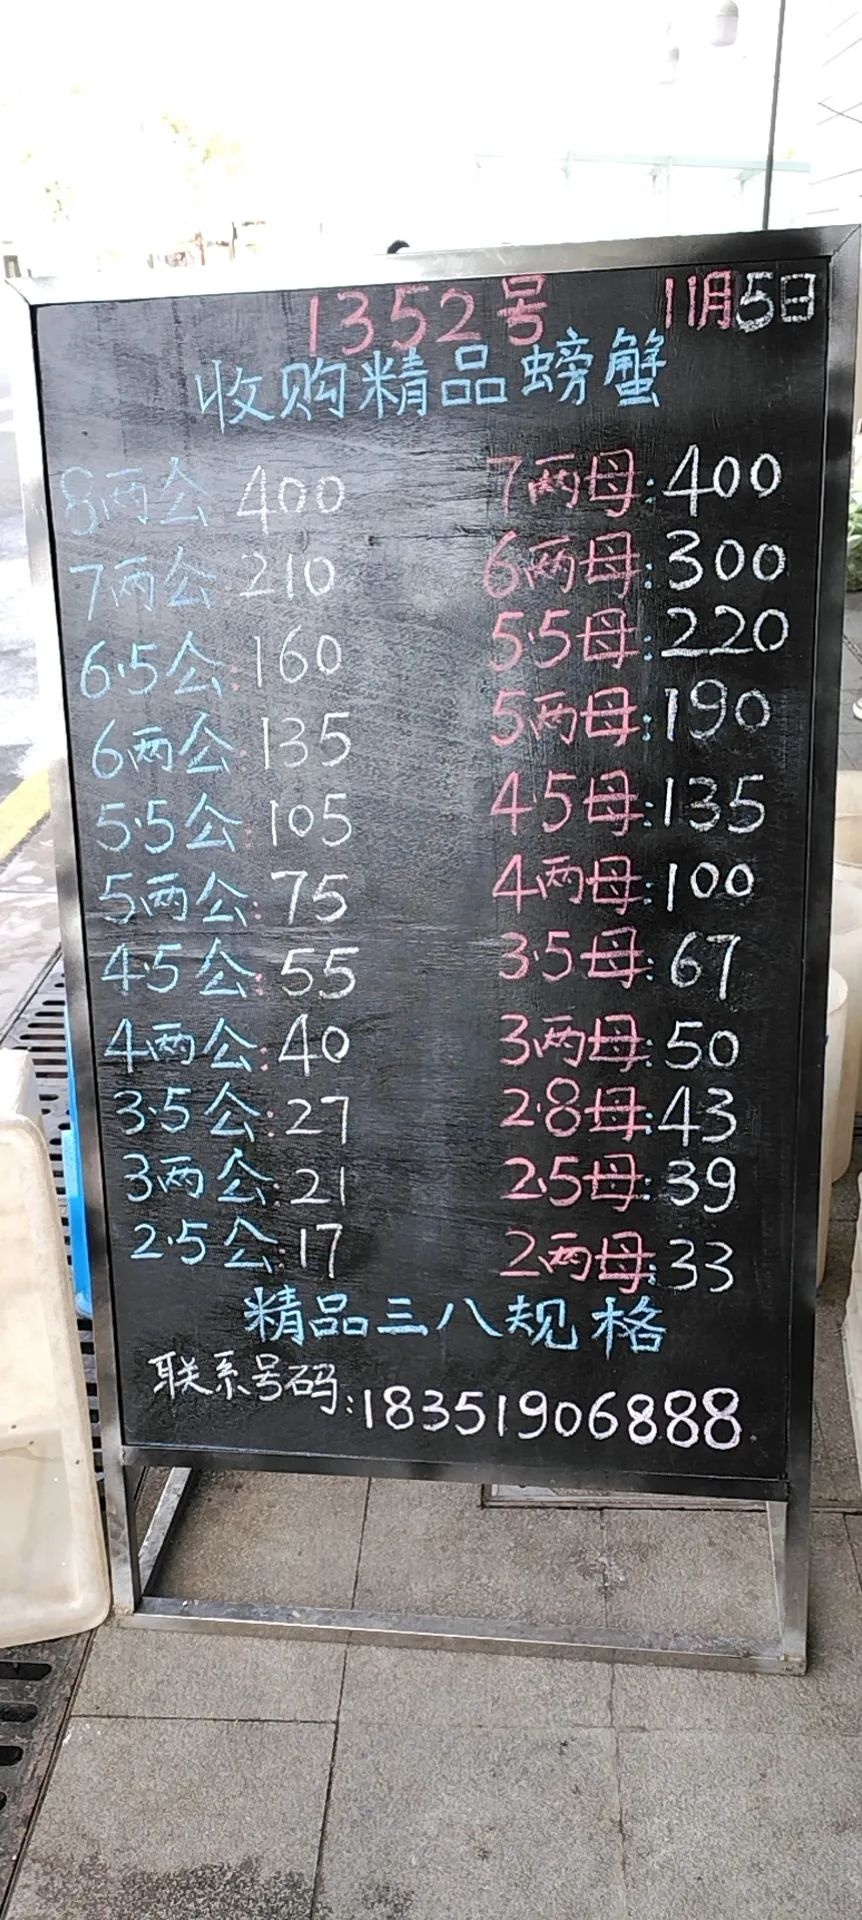 1352号 11月5日
收购精品螃蟹
8两公 400 7两母:400
7两公 210 6两母:300
6.5公:160 5.5母:220
6两公:135 5两母:190
5.5公:105 4.5母:135
5两公:75 4两母:100
4.5公:55 3.5母:67
4两公:40 3两母:50
3.5公:27 2.8母:43
3两公:21 2.5母:39
2.5公:17 2两母:33
精品三八规格
联系号码:18351906888